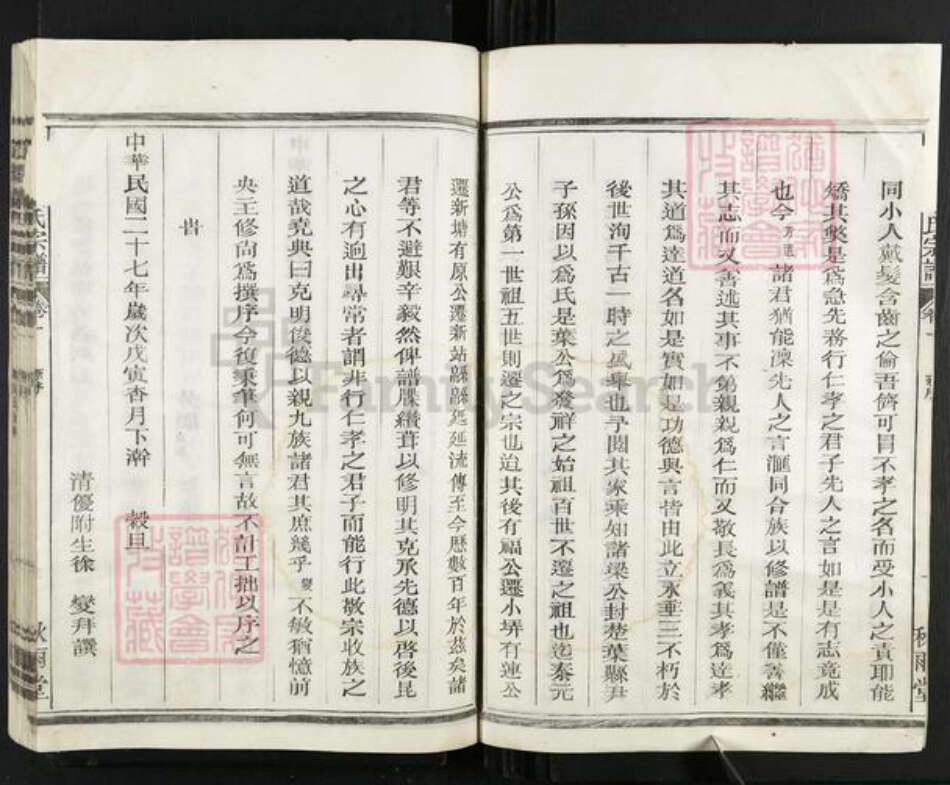 同小人戴髮含齒之倫吾儕可冒不孝之名而受小人之責耶能
矯其弊是爲急先務行仁孝之君子先人之言如是是有志竟成
也今芳遠諸君猶能凜先人之言滙同合族以修譜是不僅善繼
其志而又善述其事不第親親爲仁而又敬長爲義其孝爲達孝
其道爲達道名如是實如是功德與言皆由此立永垂三不朽於
後世洵千古一時之盛舉也予閱其家乘知諸梁公封楚葉縣尹
子孫因以爲氏是葉公爲發祥之始祖百世不遷之祖也迄泰元
公爲第一世祖五世則遷之宗也迨其後有福公遷小坪有連公
遷新塘有原公遷新站緜緜延延流傳至今歷數百年於茲矣諸
君等不避艱辛毅然俾譜牒纘葺以修明其克承先德以啓後昆
之心有逈出尋常者謂非行仁孝之君子而能行此敬宗收族之
道哉堯典曰克明俊德以親九族諸君其庶幾乎燮不敏猶憶前
央主修尙爲撰序今復秉筆何可無言故不計工拙以序之
旹
中華民國二十七年歲次戊寅香月下澣 穀旦
清優附生徐 燮拜譔
氏宗譜 卷一
秋雨堂
氏宗譜 卷一
秋雨堂
FamilySearch